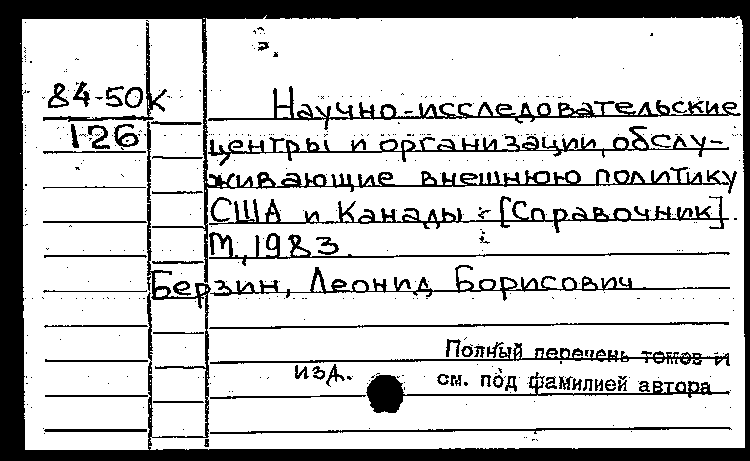 84-50к
126
Научно-исследовательские
центры и организации, обслу-
живающие внешнюю политику
США и Канады : [Справочник].
М., 1983.
Берзин, Леонид Борисович
Полный перечень томов и
изд. см. под фамилией автора